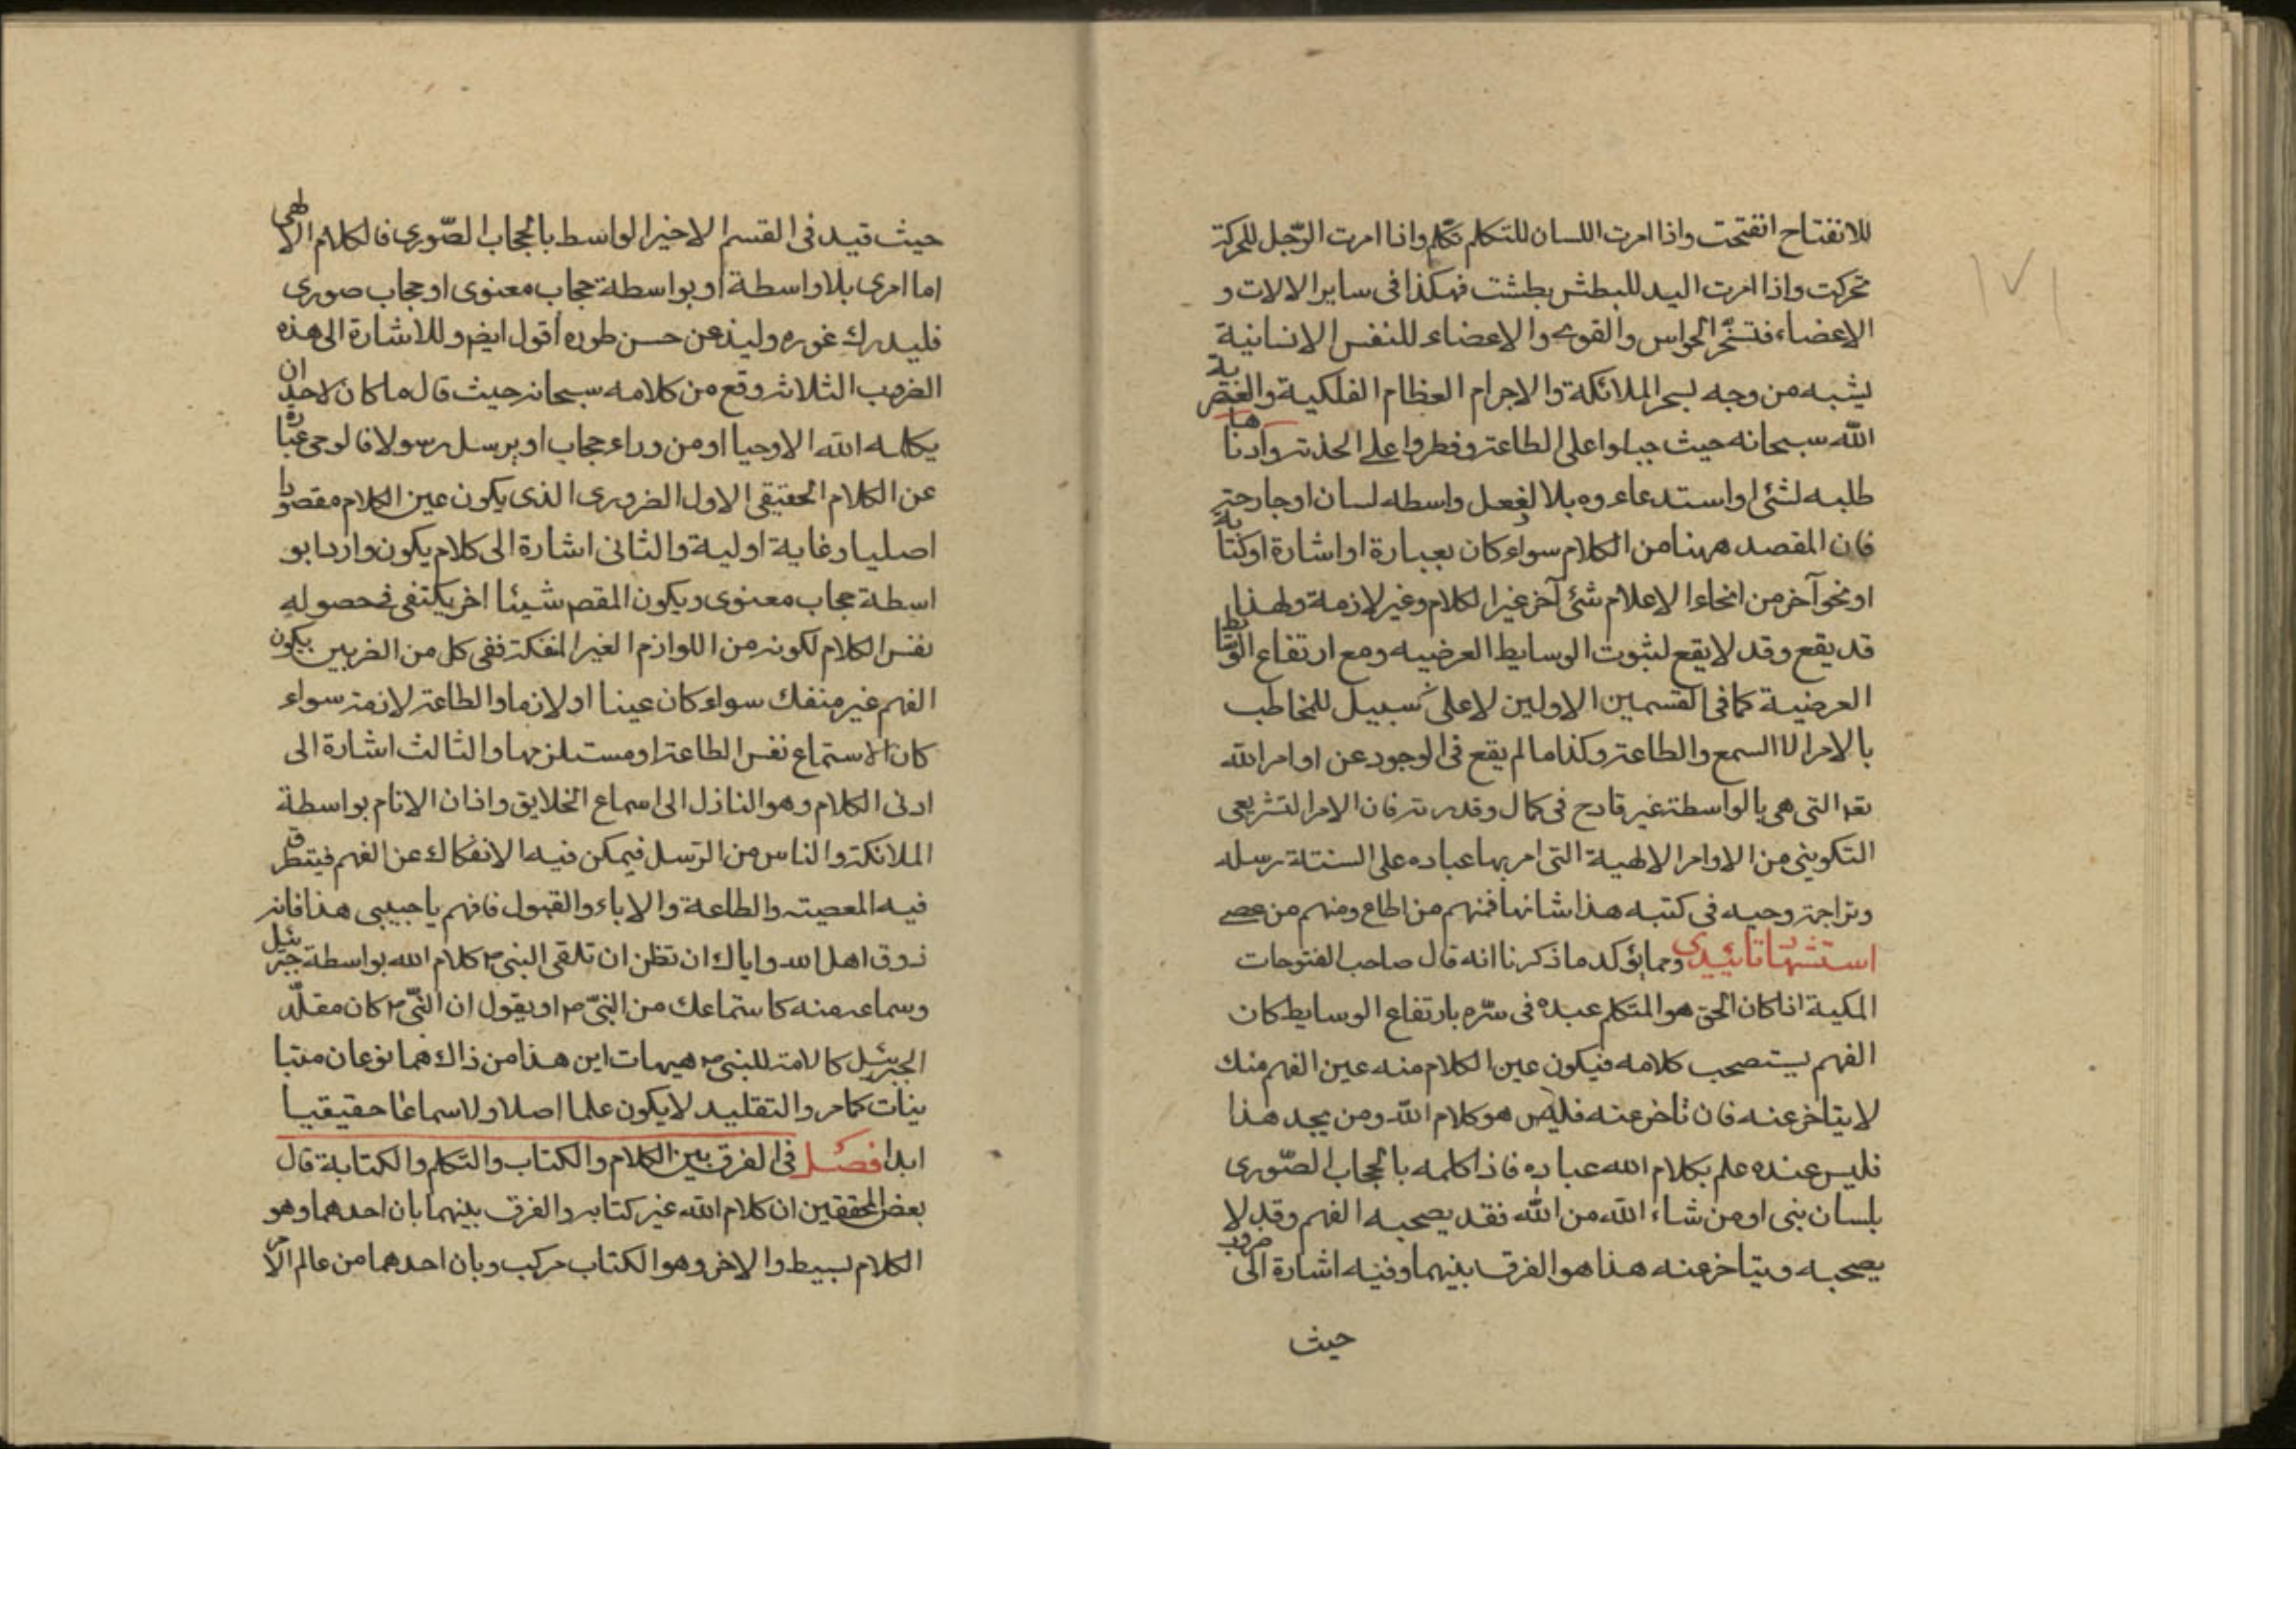 للانفتاح انفتحت واذا امرت اللسان للتكلم تكلم واذا امرت الرّجل للحركة
تحركت واذا امرت اليد للبطش بطشت فهكذا فى ساير الالات و
الاعضاء فتسخّر الحواس والقوى والاعضاء للنفس الانسانية
يشبه من وجه لسخر الملائكة والاجرام العظام الفلكية والعنصرية
الله سبحانه حيث جبلوا على الطاعة وفطروا على الخدمة وادناها
طلبه لشئ او استدعاءه بلا لفعل واسطه لسان او جارحة
فان المقصد ههنا من الكلام سواء كان بعبارة او اشارة او كتابة
او نحو آخر من انحاء الاعلام شئ آخر غير الكلام وغير لازمة ولهذا
قد يقع وقد لا يقع لثبوت الوسايط العرضيه ومع ارتفاع الوسايط
العرضية كما فى القسمين الاولين لا على سبيل للمخاطب
بالامر الا السمع والطاعة وكذا ما لم يقع فى الوجود عن اوامر الله
تعه التى هى بالواسطة غير قادح فى كمال وقدرته فان الامر التشريعى
التكوينى من الاوامر الالهية التى امر بها عباده على السنتة رسله
وتراجمة وحيه فى كتبه هذا شانها فمنهم من اطاع ومنهم من عصى
استشهاد تائيدى ومما يؤكد ما ذكرنا انه قال صاحب الفتوحات
المكية اذا كان الحق هو المتكلم عبده فى سرّه بارتفاع الوسايط كان
الفهم يستصحب كلامه فيكون عين الكلام منه عين الفهم منك
لا يتاخر عنه فان تاخر عنه فليس هو كلام الله ومن يجد هذا
فليس عنده علم بكلام الله عباده فاذا كلمه بالحجاب الصّورى
بلسان نبى او من شاء الله من الله فقد يصحبه الفهم وقد لا
يصحبه ويتاخر عنه هذا هو الفرق بينهما وفيه اشارة الى ضروب
حيث
١٧١
حيث قيد فى القسم الاخير الواسط بالحجاب الصّورى فالكلام الالهى
اما امرى بلا واسطة او بواسطة حجاب معنوى او حجاب صورى
فليدرك غوره وليذعن حسن طوره اقول ايضم وللاشارة الى هذه
الضروب الثلاثة وقع من كلامه سبحانه حيث قال ما كان لاحد ان
يكلمه الله الا وحيا او من وراء حجاب او يرسل رسولا فالوحى عبارة
عن الكلام الحقيقى الاول الضرورى الذى يكون عين الكلام مقصودا
اصليا وغاية اولية والثانى اشارة الى كلام يكون واردا بو
اسطة حجاب معنوى ويكون المقصم شيئا اخر يكتفى فى حصوله
نفس الكلام لكونه من اللوازم الغير المنفكة ففى كل من الضربين يكون
الفهم غير منفك سواء كان عينا او لازما والطاعة لازمة سواء
كان الاستماع نفس الطاعة او مستلزمها والثالث اشارة الى
ادنى الكلام وهو النازل الى اسماع الخلايق واذان الانام بواسطة
الملائكة والناس من الرّسل فيمكن فيه الانفكاك عن الفهم فيتطرق
فيه المعصيته والطاعة والاباء والقبول فافهم يا حبيبى هذا فانه
ذوق اهل الله واياك ان تظن ان تلقى النبى ص كلام الله بواسطة جبرئيل
وسماعه منه كاستماعك من النبىّ ص او يقول ان النبىّ ص كان مقلّد
الجبرئيل كالامة للنبى ص هيهات اين هذا من ذاك هما نوعان متبا
ينات كما مر والتقليد لا يكون علما اصلا ولا سماعا حقيقيا
ابدا فصل فى الفرق بين الكلام والكتاب والتكلم والكتابة قال
بعض المحققين ان كلام الله غير كتابه والفرق بينهما بان احدهما وهو
الكلام بسيط والاخر وهو الكتاب مركب وبان احدهما من عالم الامر